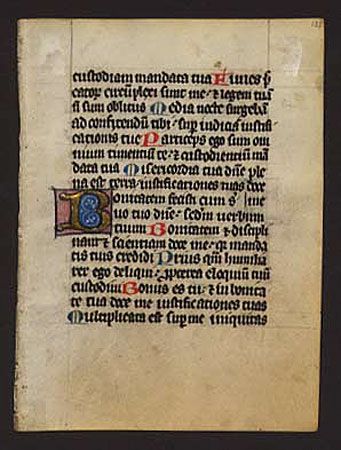 custodiam mandata tua Funes p̄
cator̄ circūplexi sunt me · & legem tuā
nō sum oblitus Media nocte surgebā
ad confitendū tibi · sup̄ iudicia iustifi
cationis tue Particeps ego sum om
nium timentiū te · & custodientiū mā
data tua Misericordia tua dn̄e ple
na est terra · iustificationes tuas doce
Bonitatem fecisti cum s̄ me
uo tuo dn̄e · sedm̄ uerbum
tuum Bonitatem & discipli
nam & scientiam doce me · q̄ manda
tis tuis credidi Prius quā humilia
rer ego deliqui · pp̄terea eloquiū tuū
custodiui Bonus es tu · & in bonita
te tua doce me iustificationes tuas
Multiplicata est sup̄ me iniquitas